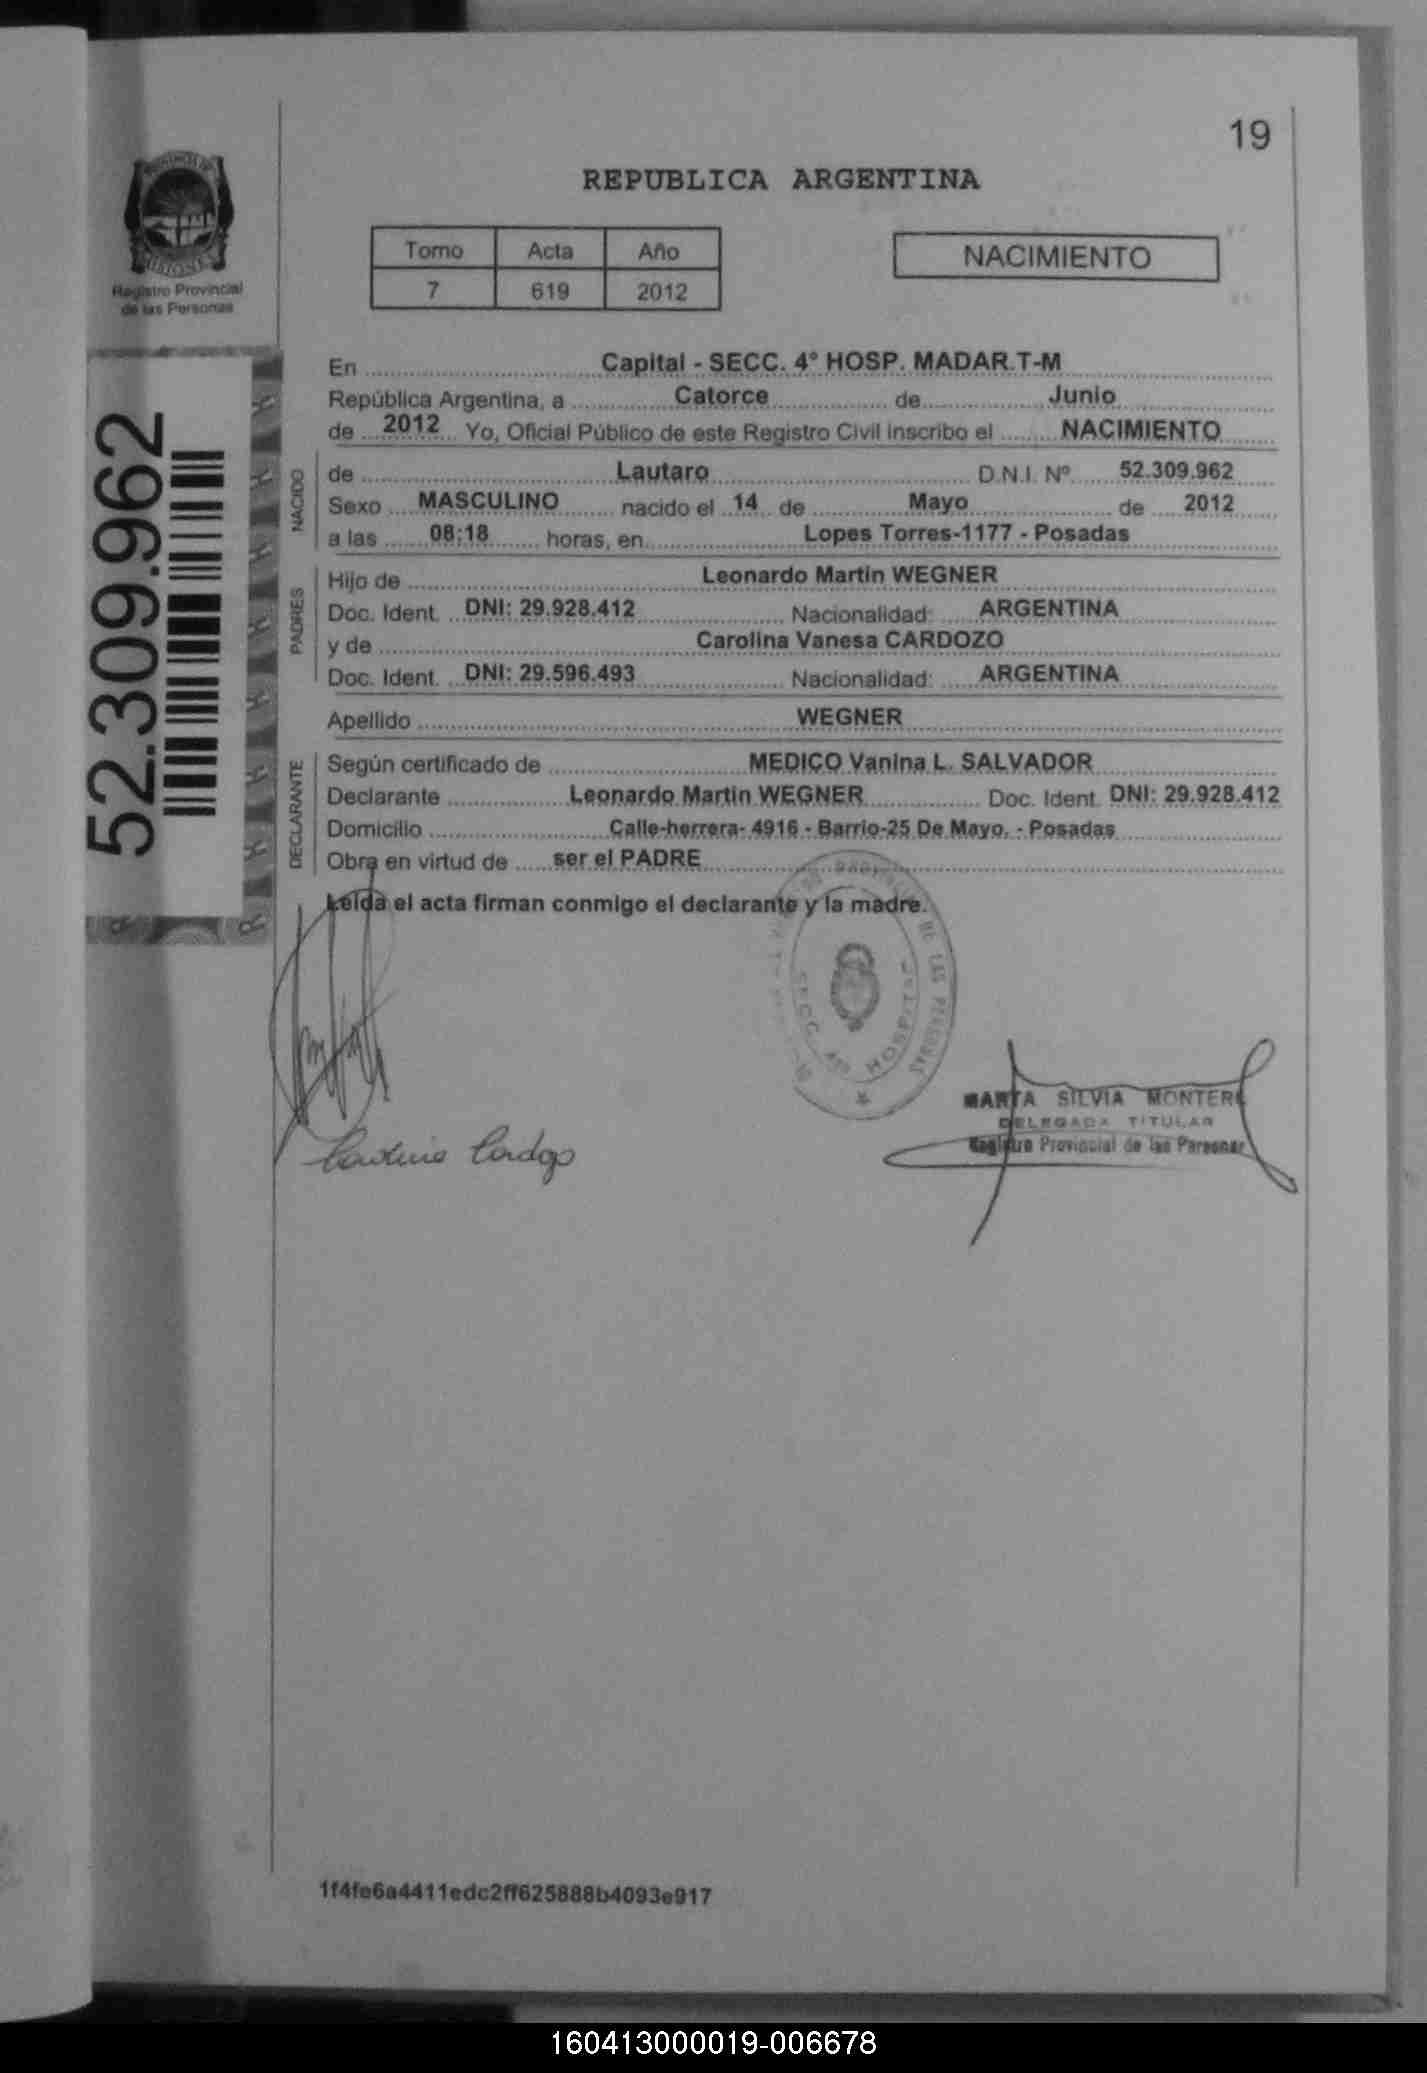 19
REPUBLICA ARGENTINA
Tomo Acta Año
7 619 2012
NACIMIENTO
PROVINCIA DE
MISIONES
Registro Provincial
de las Personas
52.309.962
En Capital - SECC. 4° HOSP. MADAR.T-M
República Argentina, a Catorce de Junio
de 2012 Yo, Oficial Público de este Registro Civil inscribo el NACIMIENTO
NACIDO
de Lautaro D.N.I. Nº 52.309.962
Sexo MASCULINO nacido el 14 de Mayo de 2012
a las 08:18 horas, en Lopes Torres-1177 - Posadas
PADRES
Hijo de Leonardo Martin WEGNER
Doc. Ident. DNI: 29.928.412 Nacionalidad: ARGENTINA
y de Carolina Vanesa CARDOZO
Doc. Ident. DNI: 29.596.493 Nacionalidad: ARGENTINA
Apellido WEGNER
DECLARANTE
Según certificado de MEDICO Vanina L. SALVADOR
Declarante Leonardo Martin WEGNER Doc. Ident. DNI: 29.928.412
Domicilio Calle-herrera- 4916 - Barrio-25 De Mayo. - Posadas
Obra en virtud de ser el PADRE
Leída el acta firman conmigo el declarante y la madre.
DE LAS PERSONAS
SECC. HOSPITAL
MARTA SILVIA MONTERO
DELEGADA TITULAR
Registro Provincial de las Personas
Carolina Cardozo
1f4fe6a4411edc2ff625888b4093e917
160413000019-006678